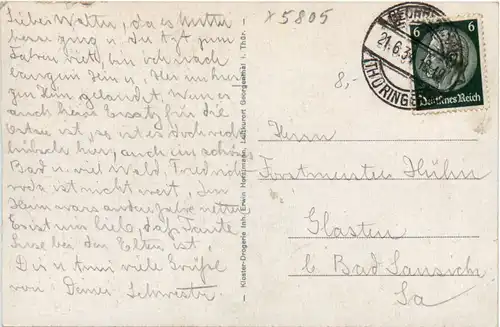 Lieber Walter, da es Mutter
besser ging u. der Arzt zum
Fahren riet, bin ich nach
hier im
zum Heim gelandet. Wenn es
auch keine Ersatz für die
Ostsee ist, so ist es doch recht
hübsch hier, auch ein schönes
Bad u. viel Wald, Friedrich-
roda ist nicht weit. Im
Heim wars andere Jahre netter.
Ernst ists lieb, daß Tante
Suse bei den Eltern ist.
Dir u. Anni viele Grüße
von Deiner Schwester
Kloster-Drogerie Inh. Erwin Horstmann, Luftkurort Georgenthal i. Thür.
x 5805
8,-
21.6.34
(THÜRINGEN)
6 6
Deutsches Reich
Herrn
Forstmeister Hühn
Glasten
b. Bad Lausick
Sa